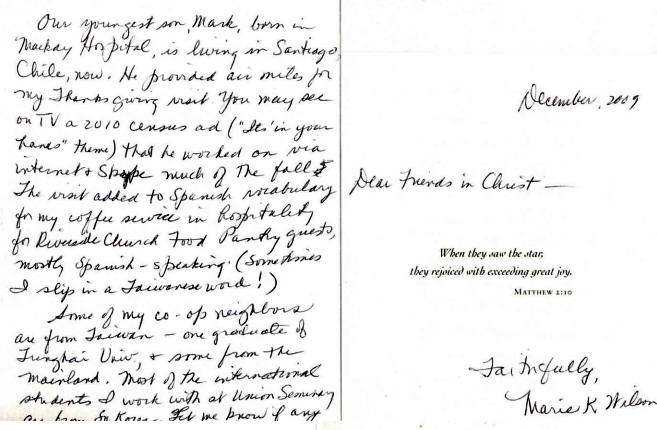 Our youngest son, Mark, born in
Mackay Hospital, is living in Santiago,
Chile, now. He provided air miles for
my Thanksgiving visit. You may see
on TV a 2010 census ad ("It's in your
hands" theme) that he worked on via
internet & Skype much of the fall.
The visit added to Spanish vocabulary
for my coffee service in hospitality
for Riverside Church Food Pantry guests,
mostly Spanish-speaking. (Sometimes
I slip in a Taiwanese word!)
Some of my co-op neighbors
are from Taiwan — one graduate of
Tunghai Univ, & some from the
mainland. Most of the international
students I work with at Union Seminary
are from So Korea. Let me know if any
December, 2009
Dear Friends in Christ —
When they saw the star,
they rejoiced with exceeding great joy.
MATTHEW 2:10
Faithfully,
Marie K. Wilson